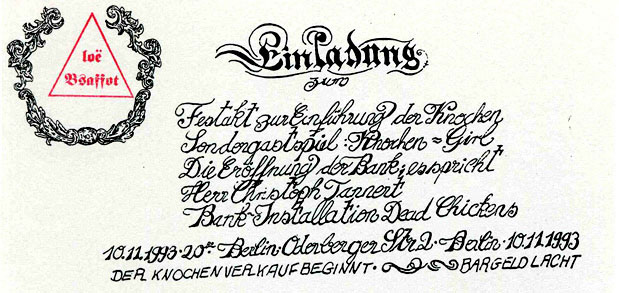 ioë
Bsaffot
Einladung
zum
Festakt zur Einführung der Knochen
Sondergastspiel: Knochen = Girl
Die Eröffnung der Bank; es spricht
Herr Christoph Tannert
Bank-Installation Dead Chickens
10.11.1993 · 20ºº · Berlin · Oderberger Str 2 · Berlin · 10.11.1993
DER KNOCHENVERKAUF BEGINNT · BARGELD LACHT